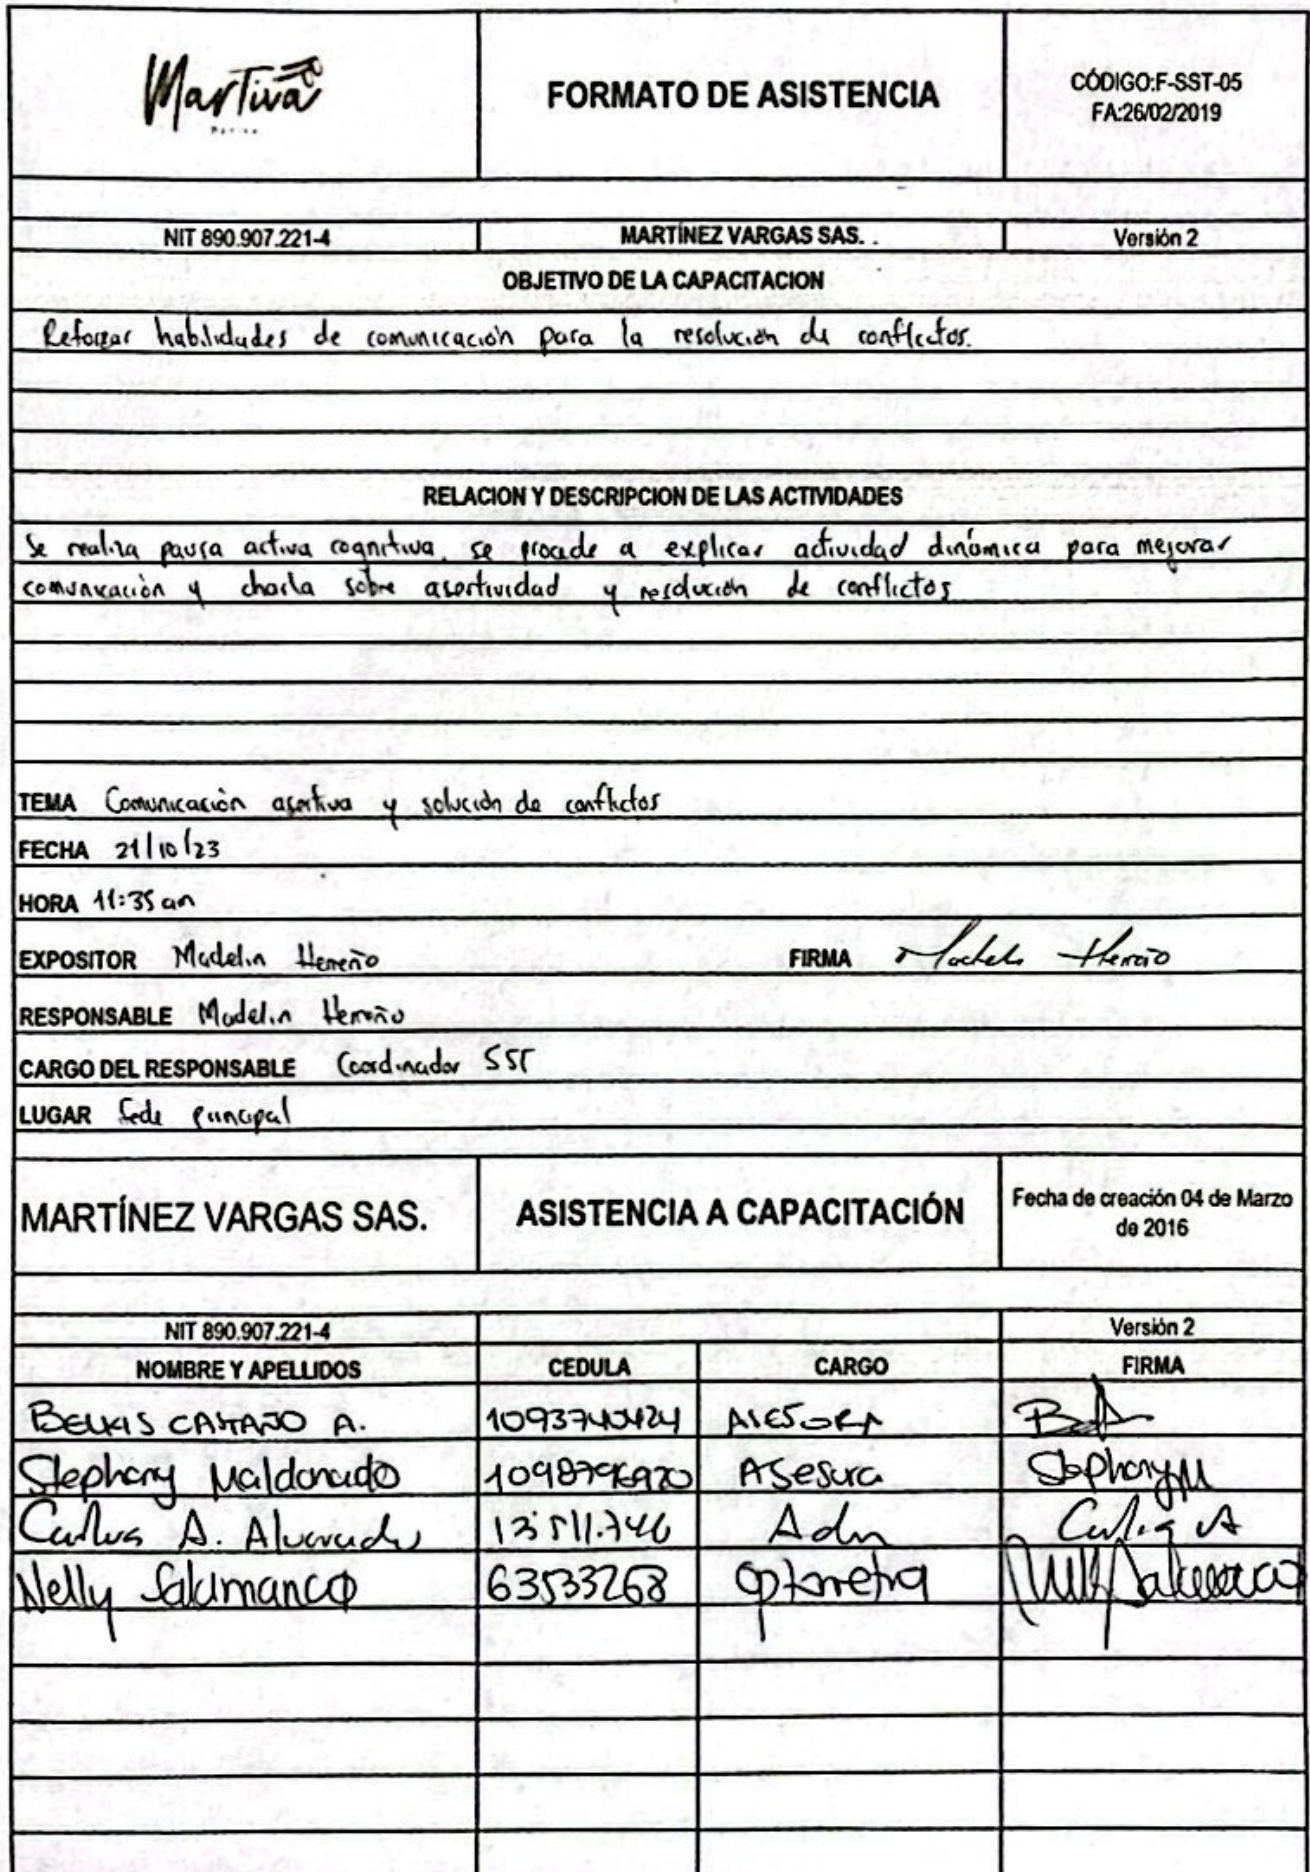 Martiva
FORMATO DE ASISTENCIA
CÓDIGO:F-SST-05
FA:26/02/2019
NIT 890.907.221-4
MARTÍNEZ VARGAS SAS. .
Versión 2
OBJETIVO DE LA CAPACITACION
Reforzar habilidades de comunicación para la resolución de conflictos.
RELACION Y DESCRIPCION DE LAS ACTIVIDADES
Se realiza pausa activa cognitiva, se procede a explicar actividad dinámica para mejorar
comunicación y charla sobre asertividad y resolución de conflictos
TEMA Comunicación asertiva y solución de conflictos
FECHA 21/10/23
HORA 11:35 am
EXPOSITOR Madelin Herreño FIRMA Herreño
RESPONSABLE Madelin Herreño
CARGO DEL RESPONSABLE Coordinador SST
LUGAR Sede principal
MARTÍNEZ VARGAS SAS.
ASISTENCIA A CAPACITACIÓN
Fecha de creación 04 de Marzo
de 2016
NIT 890.907.221-4
Versión 2
NOMBRE Y APELLIDOS CEDULA CARGO FIRMA
BELKIS CASTAÑO A. 1093740424 ASESORA
Stephany Maldonado 1098796920 Asesora Stephany M
Carlos A. Alvarado 13511.746 Adm Carlos A
Nelly Salamanca 63533268 optometra Nelly Salamanca